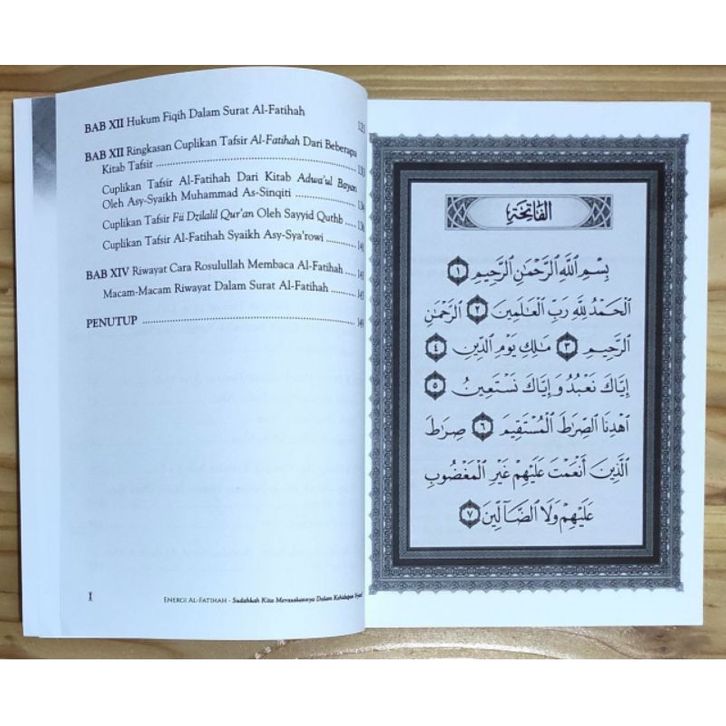 BAB XII Hukum Fiqih Dalam Surat Al-Fatihah
BAB XII Ringkasan Cuplikan Tafsir Al-Fatihah Dari Beberapa
Kitab Tafsir
Cuplikan Tafsir Al-Fatihah Dari Kitab Adwa'ul Bayan
Oleh Asy-Syaikh Muhammad As-Sinqiti
Cuplikan Tafsir Fii Dzilalil Qur'an Oleh Sayyid Quthb
Cuplikan Tafsir Al-Fatihah Syaikh Asy-Sya'rowi
BAB XIV Riwayat Cara Rosulullah Membaca Al-Fatihah
Macam-Macam Riwayat Dalam Surat Al-Fatihah
PENUTUP
I
ENERGI AL-FATIHAH - Sudahkah Kita Merasakannya Dalam Kehidupan
الفَاتِحَة
بِسْمِ ٱللَّهِ ٱلرَّحْمَٰنِ ٱلرَّحِيمِ ١
ٱلْحَمْدُ لِلَّهِ رَبِّ ٱلْعَٰلَمِينَ ٢ ٱلرَّحْمَٰنِ
ٱلرَّحِيمِ ٣ مَٰلِكِ يَوْمِ ٱلدِّينِ ٤
إِيَّاكَ نَعْبُدُ وَإِيَّاكَ نَسْتَعِينُ ٥
ٱهْدِنَا ٱلصِّرَٰطَ ٱلْمُسْتَقِيمَ ٦ صِرَٰطَ
ٱلَّذِينَ أَنْعَمْتَ عَلَيْهِمْ غَيْرِ ٱلْمَغْضُوبِ
عَلَيْهِمْ وَلَا ٱلضَّآلِّينَ ٧